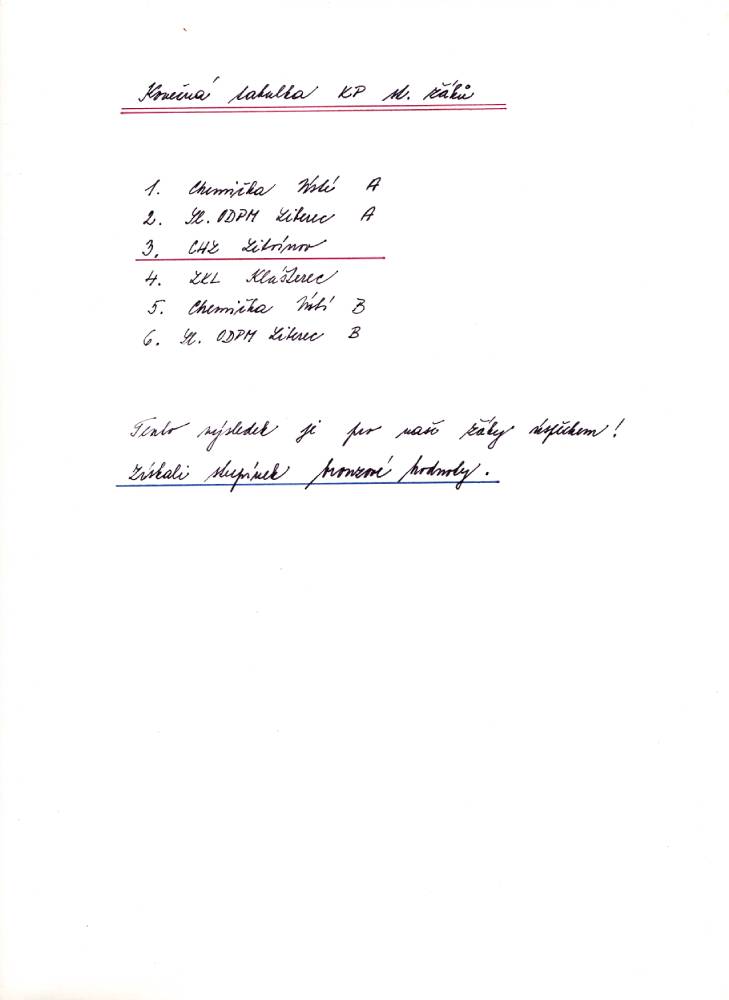 Konečná tabulka KP st. žáků
1. Chemička Ústí A
2. Sl. ODPM Liberec A
3. CHZ Litvínov
4. ZKL Klášterec
5. Chemička Ústí B
6. Sl. ODPM Liberec B
Tento výsledek je pro naše žáky úspěchem!
Získali stupínek bronzové hodnoty.